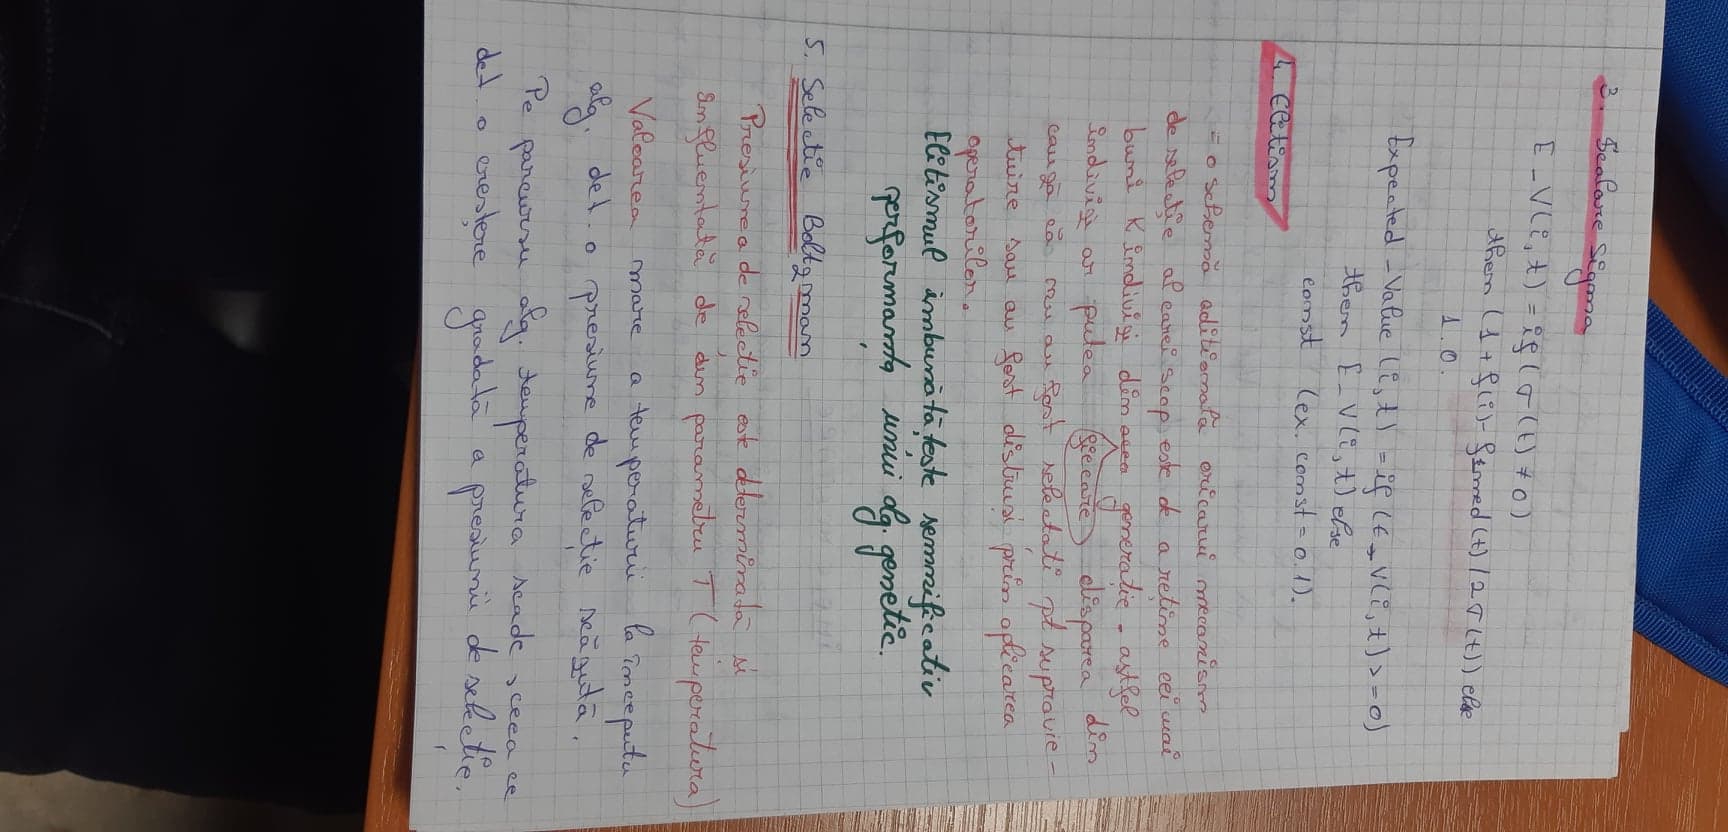 3. Scalare Sigma
E_V(i,t) = if (σ(t) ≠ 0)
then (1 + f(i) - fmed(t) / 2σ(t)) else
1.0.
Expected_Value (i,t) = if (E_V(i,t) >= 0)
then E_V(i,t) else
const (ex. const = 0.1).
4. Elitism
= o schemă adițională oricarui mecanism
de selecție al carei scop este de a reține cei mai
buni K indivizi din fiecare generație. astfel
indivizi ar putea disparea din
cauză că nu au fost selectati pt supravie-
tuire sau au fost distruși prin aplicarea
operatorilor.
Elitismul îmbunătățește semnificativ
performanța unui alg. genetic.
5. Selectie Boltzman
Presiunea de selecție este determinată si
influentată de un parametru T (temperatura)
Valoarea mare a temperaturii la începutu
alg. det. o presiune de selecție scăzută.
Pe parcursu alg. temperatura scade, ceea ce
det. o creștere gradată a presiunii de selecție.